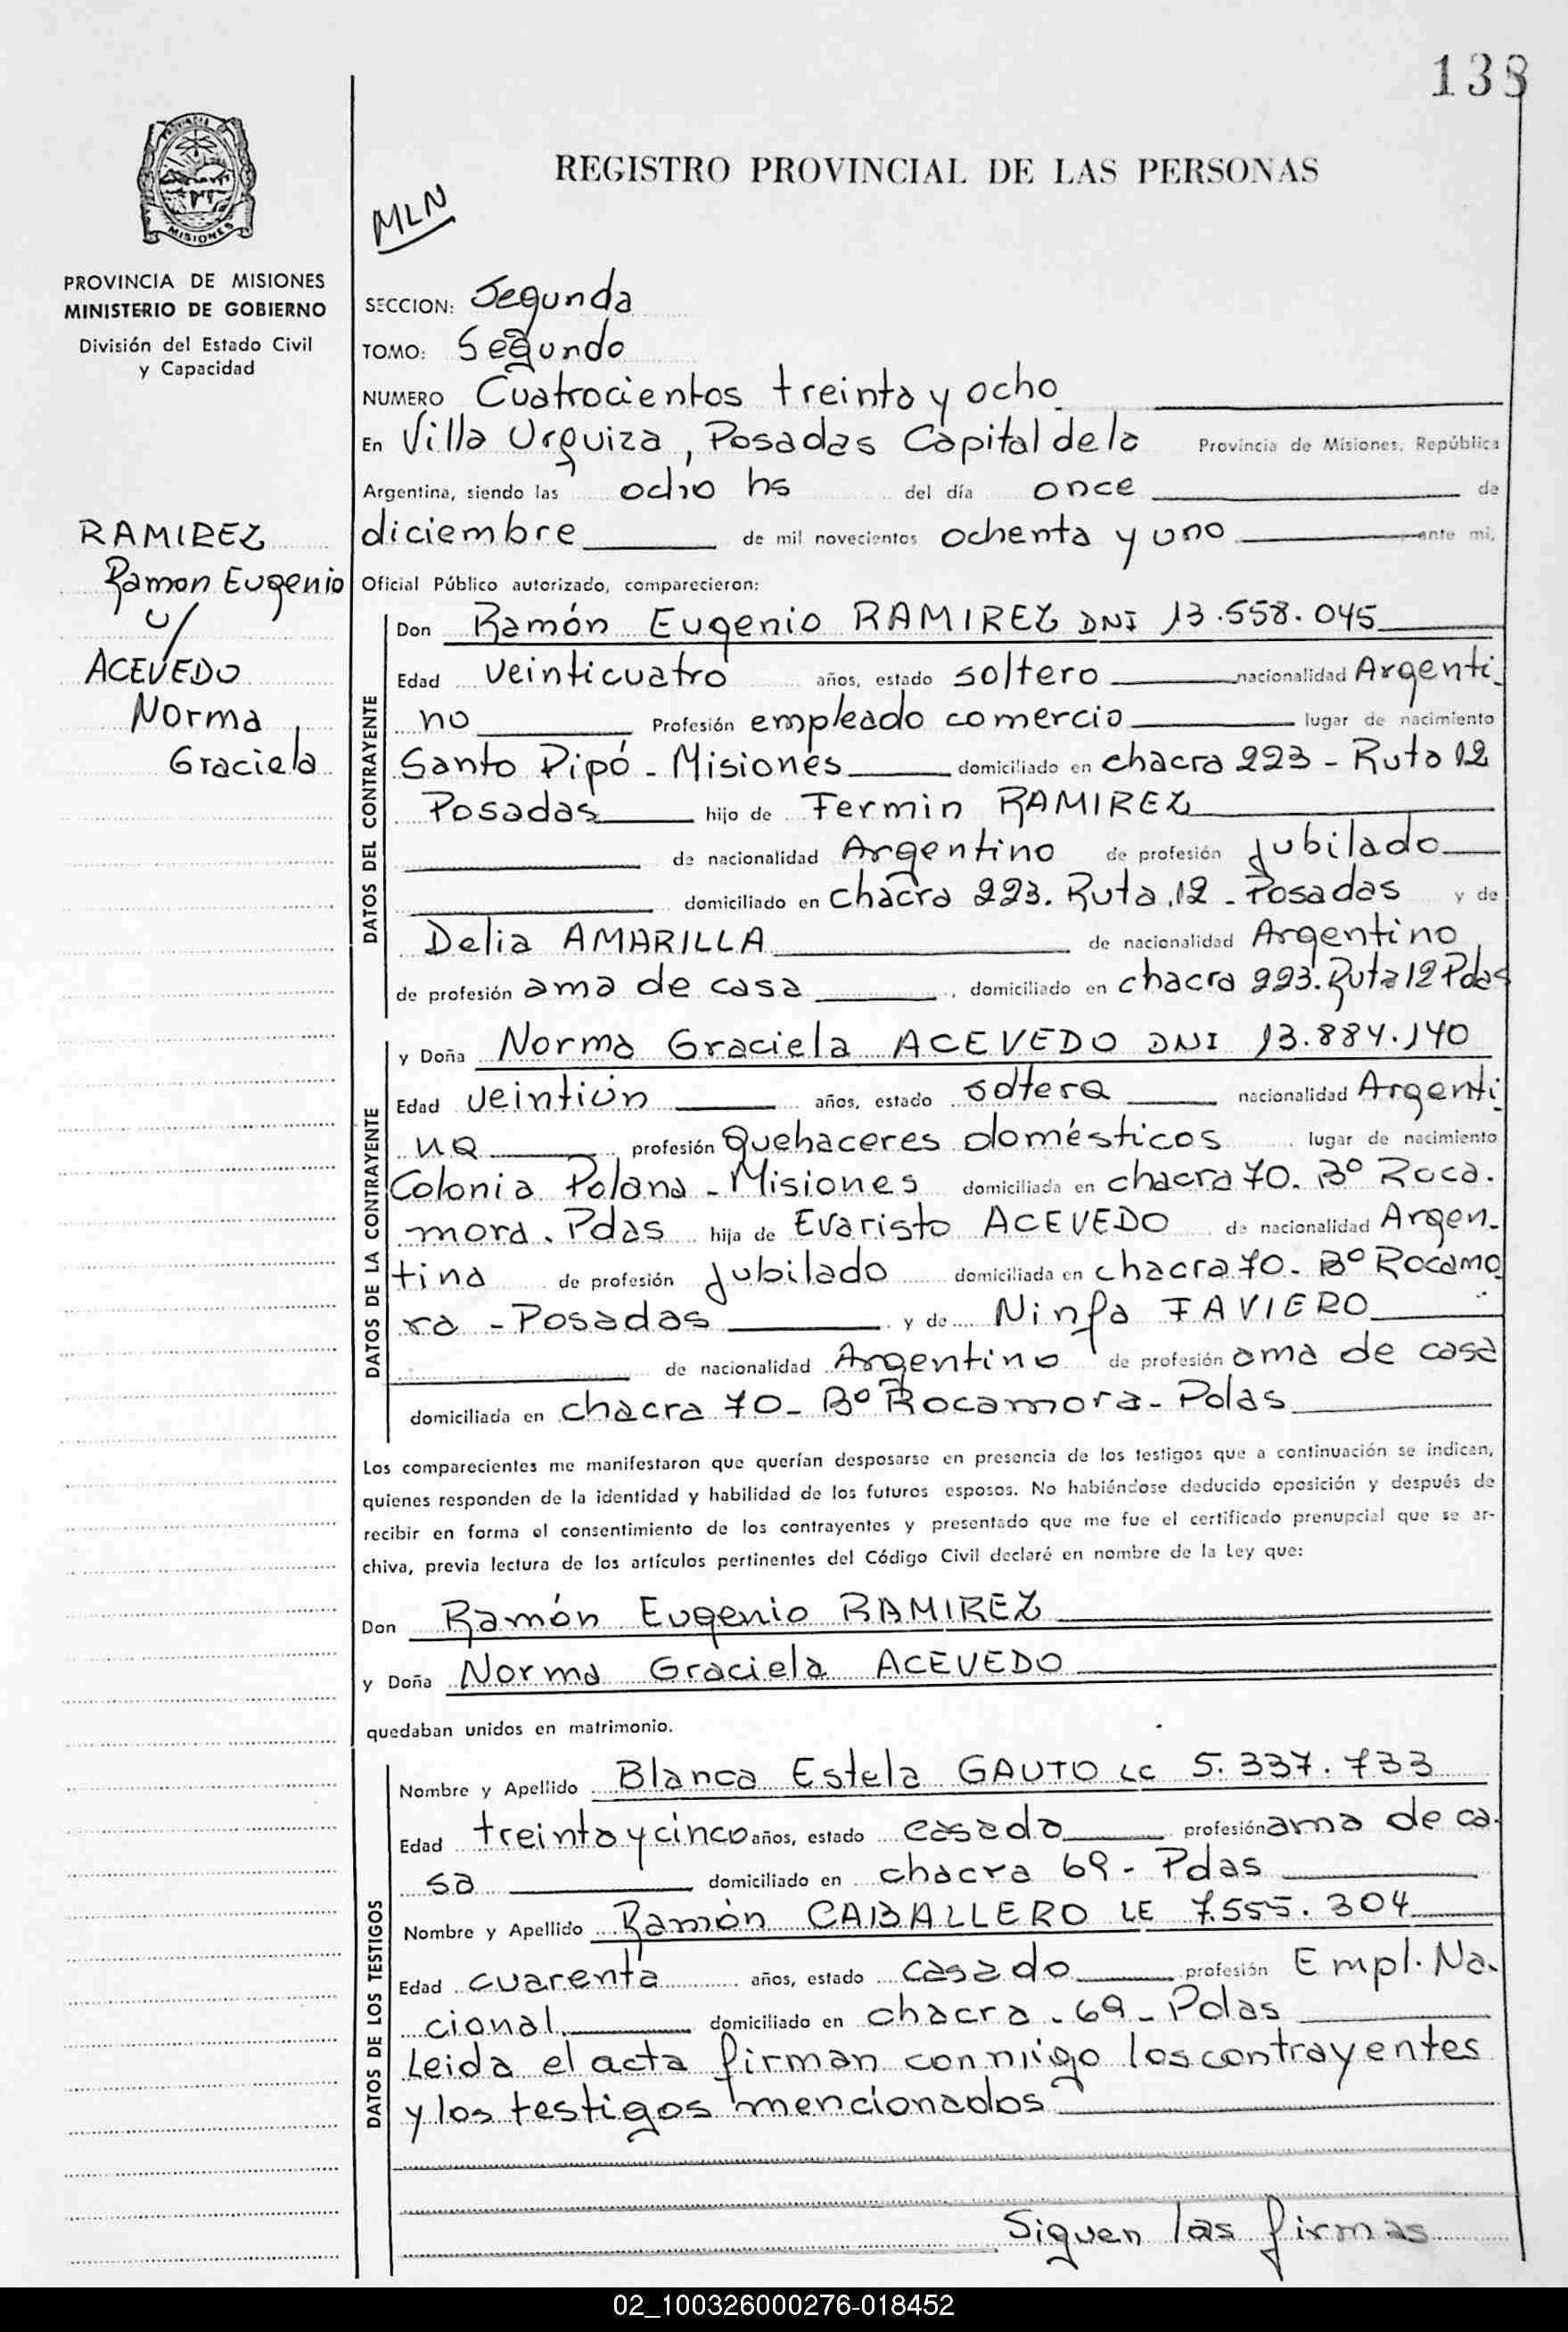 138
REGISTRO PROVINCIAL DE LAS PERSONAS
MLN
PROVINCIA DE MISIONES
MINISTERIO DE GOBIERNO
División del Estado Civil
y Capacidad
RAMIREZ
Ramon Eugenio
c/
ACEVEDO
Norma
Graciela
SECCION: Segunda
TOMO: Segundo
NUMERO Cuatrocientos treinta y ocho
En Villa Urquiza, Posadas Capital de la Provincia de Misiones, República
Argentina, siendo las ocho hs del día once de
diciembre de mil novecientos ochenta y uno ante mi,
Oficial Público autorizado, comparecieron:
DATOS DEL CONTRAYENTE
Don Ramón Eugenio RAMIREZ DNI 13.558.045
Edad veinticuatro años, estado soltero nacionalidad Argenti-
no Profesión empleado comercio lugar de nacimiento
Santo Pipó - Misiones domiciliado en chacra 223 - Ruta 12
Posadas hijo de Fermin RAMIREZ
de nacionalidad Argentino de profesión jubilado
domiciliado en chacra 223. Ruta 12 - Posadas y de
Delia AMARILLA de nacionalidad Argentino
de profesión ama de casa, domiciliado en chacra 223. Ruta 12 Pdas
DATOS DE LA CONTRAYENTE
y Doña Norma Graciela ACEVEDO DNI 13.884.140
Edad veintiún años, estado soltera nacionalidad Argenti-
na profesión Quehaceres domésticos lugar de nacimiento
Colonia Polana - Misiones domiciliada en chacra 70. Bº Roca-
mora. Pdas hija de Evaristo ACEVEDO de nacionalidad Argen-
tina de profesión jubilado domiciliada en chacra 70 - Bº Rocamo
ra - Posadas y de Ninfa FAVIERO
de nacionalidad Argentino de profesión ama de casa
domiciliada en chacra 70 - Bº Rocamora - Pdas
Los comparecientes me manifestaron que querían desposarse en presencia de los testigos que a continuación se indican,
quienes responden de la identidad y habilidad de los futuros esposos. No habiéndose deducido oposición y después de
recibir en forma el consentimiento de los contrayentes y presentado que me fue el certificado prenupcial que se ar-
chiva, previa lectura de los artículos pertinentes del Código Civil declaré en nombre de la Ley que:
Don Ramón Eugenio RAMIREZ
y Doña Norma Graciela ACEVEDO
quedaban unidos en matrimonio.
DATOS DE LOS TESTIGOS
Nombre y Apellido Blanca Estela GAUTO LC 5.337.733
Edad treinta y cinco años, estado casada profesión ama de ca-
sa domiciliado en chacra 69 - Pdas
Nombre y Apellido Ramón CABALLERO LE 7.555.304
Edad cuarenta años, estado casado profesión Empl. Na-
cional domiciliado en chacra - 69 - Pdas
Leida el acta firman conmigo los contrayentes
y los testigos mencionados
Siguen las firmas
02_100326000276-018452